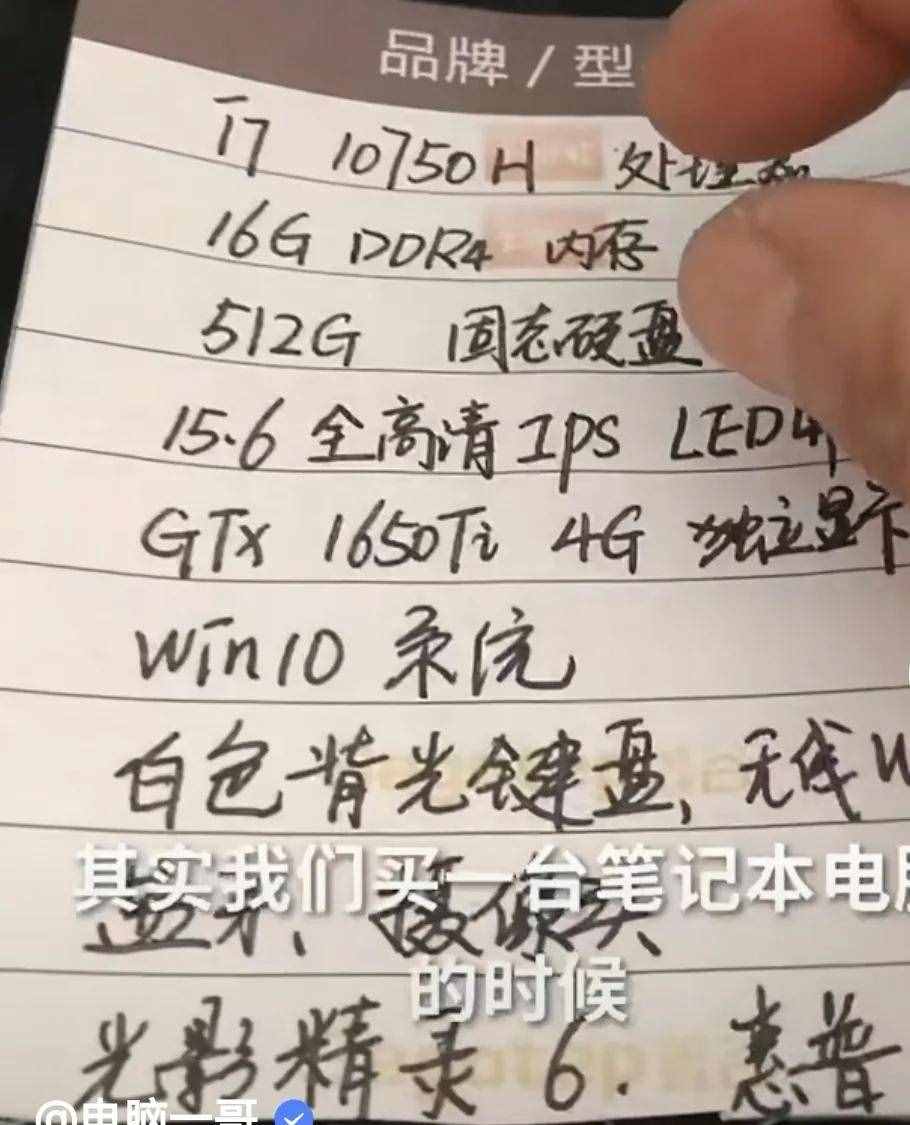 品牌 / 型
i7 10750H 处理器
16G DDR4 内存
512G 固态硬盘
15.6 全高清 IPS LED
GTX 1650Ti 4G 独立显卡
Win10 系统
白色背光键盘, 无线W
其实我们买一台笔记本电脑
蓝牙、摄像头、
的时候
光影精灵 6. 惠普
@电脑一哥